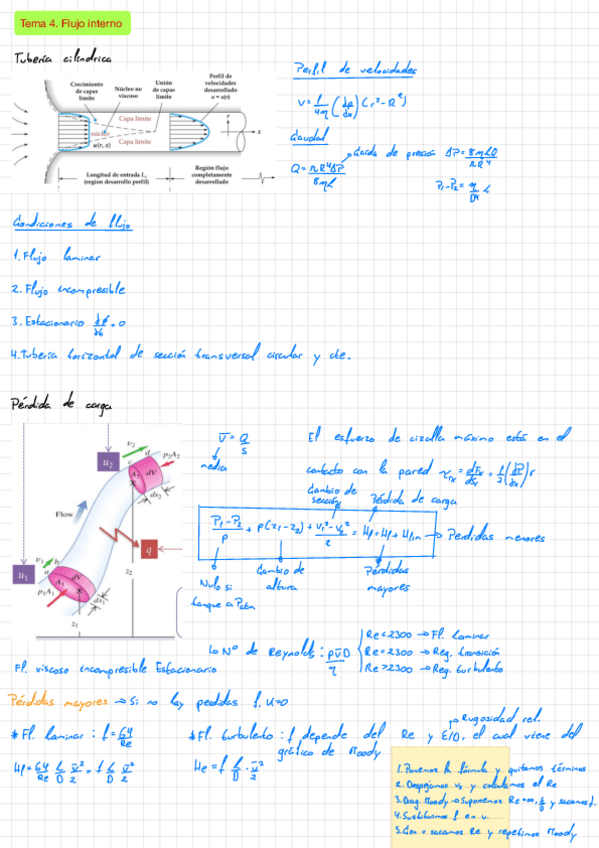 Tema 4. Flujo interno
Tubería cilíndrica
Crecimiento de capas límite
Núcleo no viscoso
Unión de capas límite
Perfil de velocidades desarrollado u = u(r)
Capa límite
núcleo
Capa límite
u(r, x)
r
x
Longitud de entrada Le (region desarrollo perfil)
Región flujo completamente desarrollado
Perfil de velocidades
V = 1/4η (dp/dx) (r² - R²)
Caudal
Caida de presión ΔP = 8ηLQ/πR⁴
Q = πR⁴ΔP/8ηL
Condiciones de flujo
1. Flujo laminar
2. Flujo incompresible
3. Estacionario
4. Tubería horizontal de sección transversal circular y cte.
Pérdida de carga
v̄ = Q/S
media
El esfuerzo de cizalla máximo está en el
contacto con la pared
Cambio de sección
Pérdida de carga
Pérdidas menores
Nulo si tanque a Patm
Cambio de altura
Pérdidas mayores
Flow
u₂
u₁
q
v₂
p₂A₂
A₂
dV
ds₂
v₁
p₁A₁
A₁
dV
ds₁
z₂
z₁
a
b
c
d
Nº de Reynolds: ρv̄D/η
Re < 2300 → Fl. laminar
Re = 2300 → Reg. transición
Re > 2300 → Reg. turbulento
Fl. viscoso incompresible Estacionario
Pérdidas mayores → Si no hay perdidas
* Fl. laminar: f = 64/Re
* Fl. turbulento: f depende del Re y E/D, el cual viene del
gráfico de Moody
Rugosidad rel.
1. Ponemos la fórmula y quitamos términos
2. Despejamos v₂ y calculamos el Re
3. Diag. Moody → Suponemos Re=∞, E/D y sacamos f
4. Sustituimos f en v
5. Con v sacamos Re y repetimos Moody